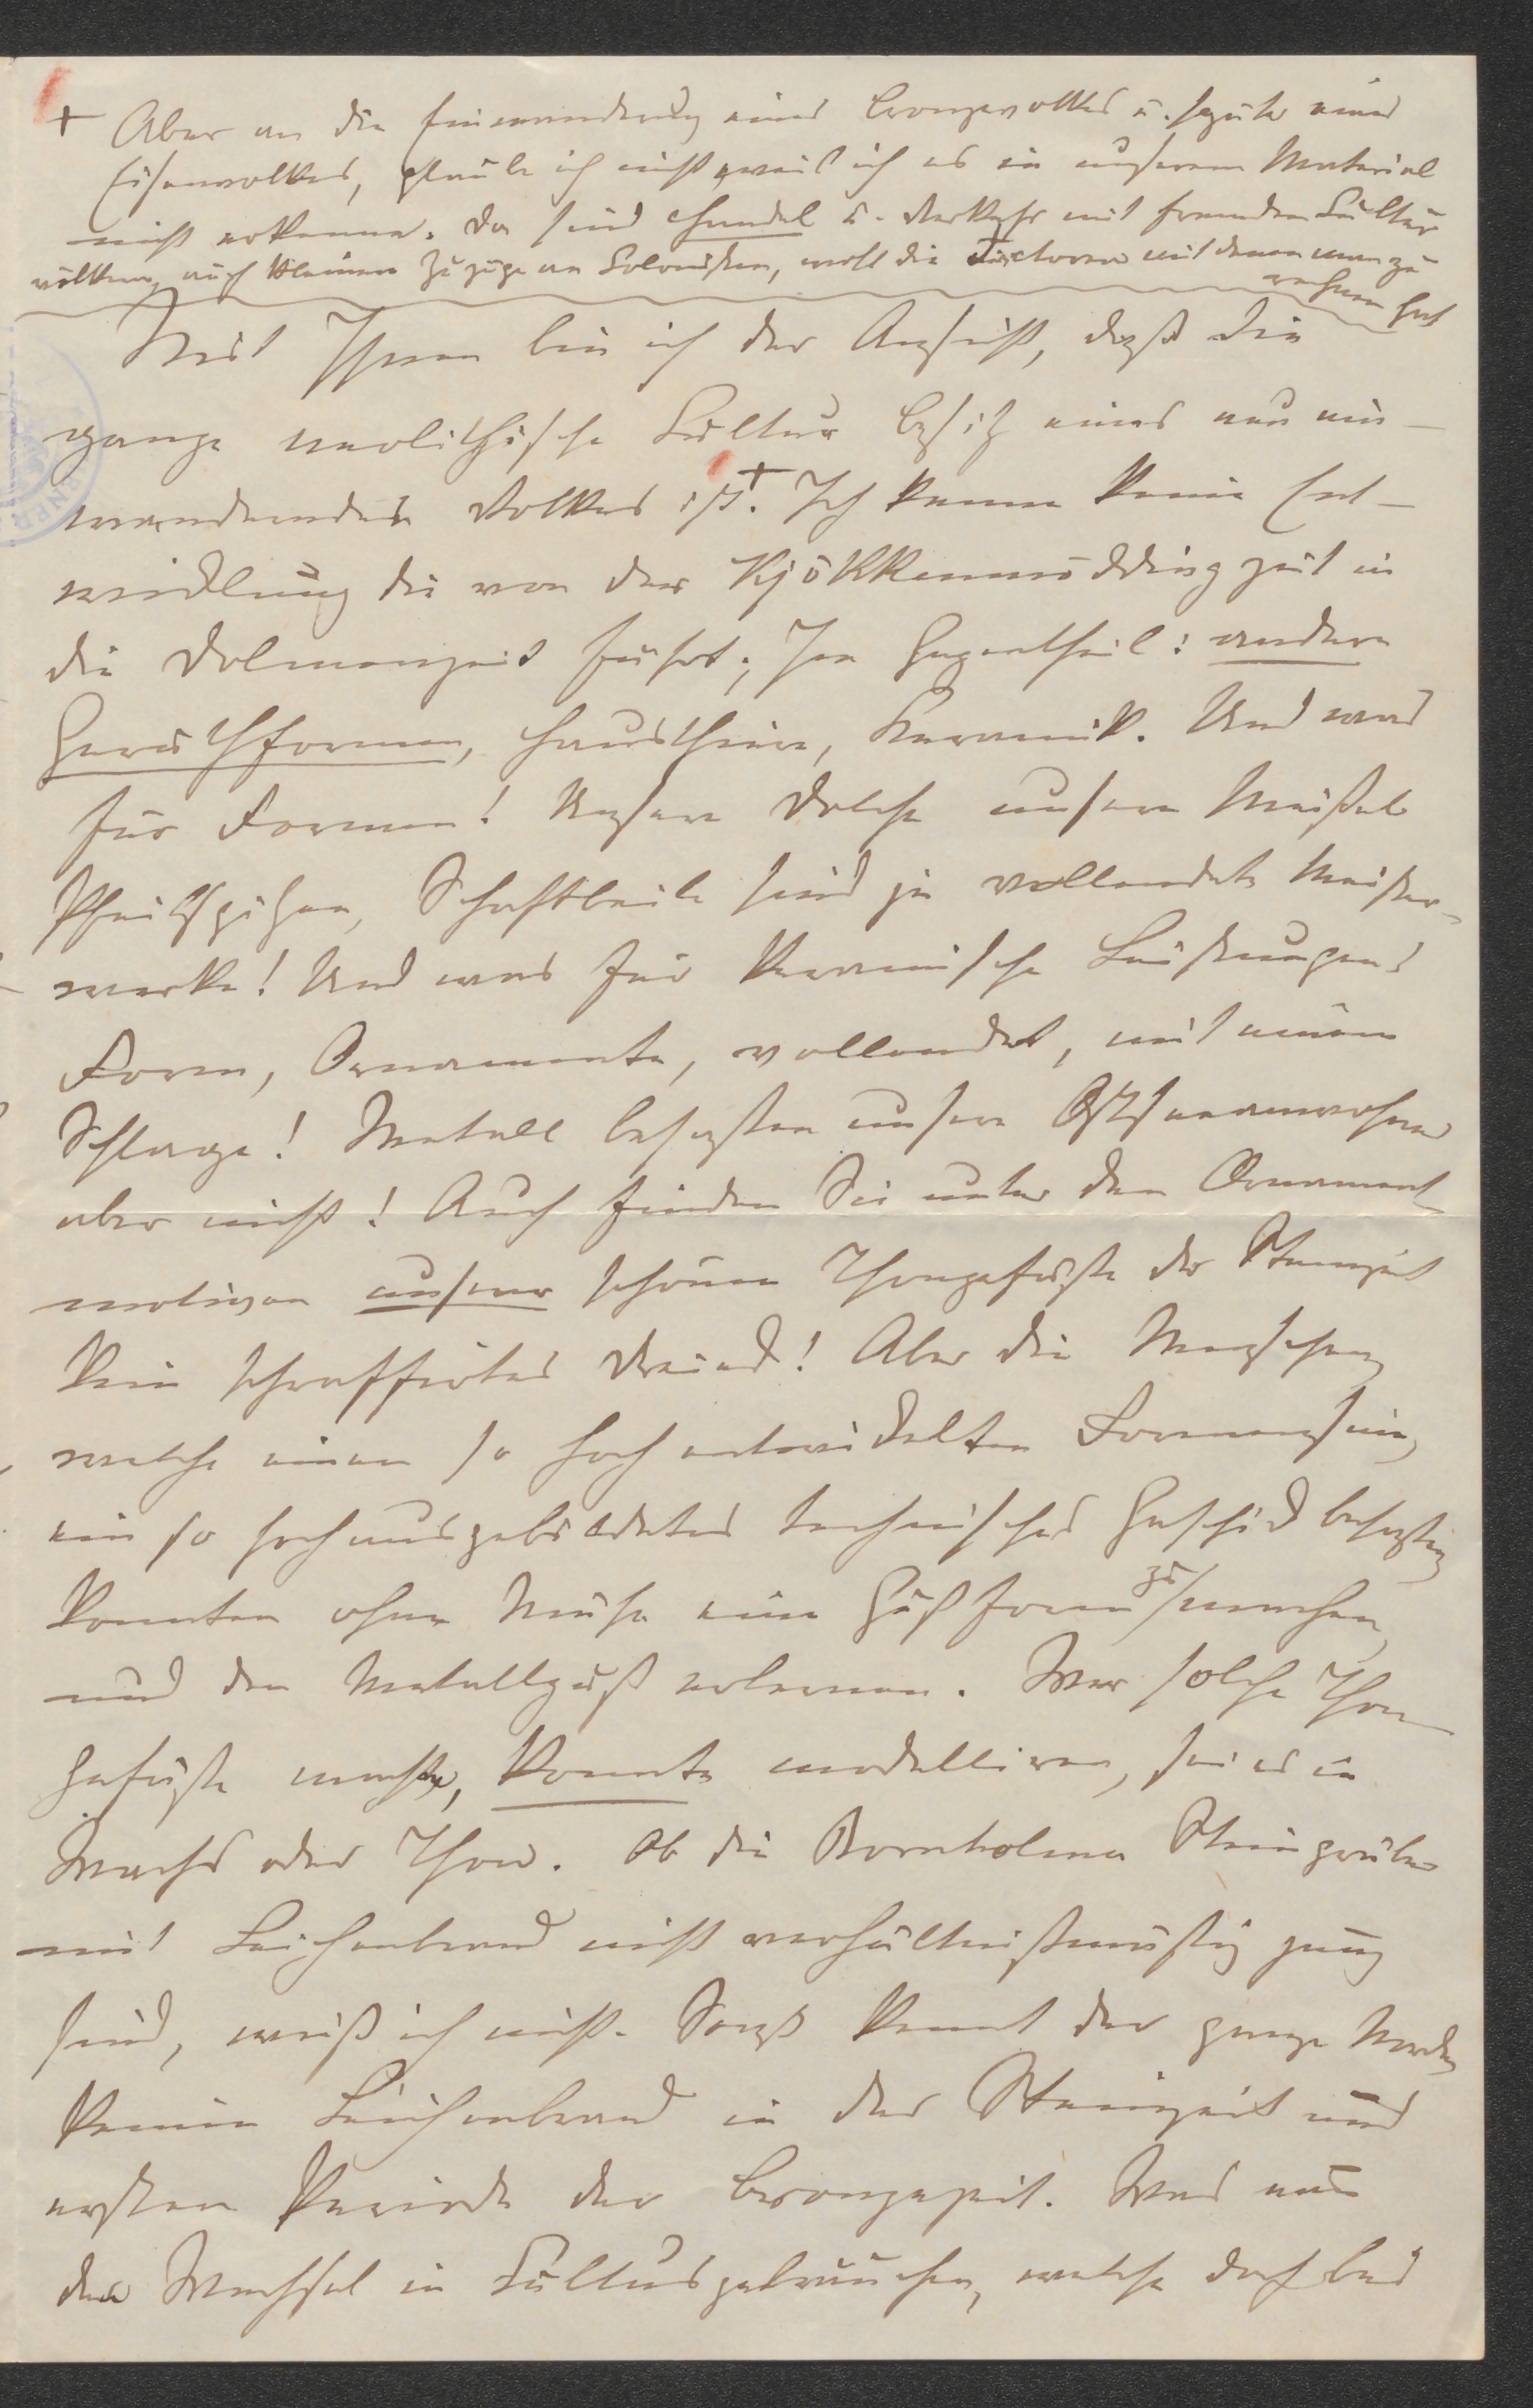 + Aber an die Einwanderung eines Bronzevolkes u. später eines
Eisenvolkes, glaube ich nicht, weil ich es in unserem Material
nicht erkenne. Da sind Handel u. Verkehr mit fremden Cultur
völkern, auch kleinere Zuzüge an Colonisten, wohl die Factoren mit denen man zu
rechnen hat
Mit Ihnen bin ich der Ansicht, daß die
ganze neolithische Cultur Besitz eines neu ein-
wandernden Volkes ist.+ Ich kenne keine Ent-
wicklung die von der Kjökkenmöddingzeit in
die Dolmenzeit führt; Im Gegentheil: andere
Geräthformen, Hausthiere, Keramik. Und was
für Formen! Unsere Dolche unsere Meißel
Pfeilspitzen, Schaftbeile sind ja vollendete Meister-
werke! Und was für keramische Leistungen!
Form, Ornamente, vollendet, mit einem
Schlage! Metall besaßen unsere Ostseeanwohner
aber nicht! Auch finden Sie unter den Ornament-
motiven unserer schönen Thongefäße der Steinzeit
kein schraffirtes Dreieck! Aber die Menschen,
welche einen so hoch entwickelten Formensinn,
ein so hoch ausgebildetes technisches Geschick besaßen,
konnten ohne Mühe eine Gußform zu machen,
und den Metallguß erlernen. Wer solche Thon
gefäße machte, konnte modelliren, sei es in
Wachs oder Thon. Ob die Bornholmer Steingräber
mit Leichenbrand nicht verhältnißmäßig jung
sind, weiß ich nicht. Sonst kennt der ganze Norden
keinen Leichenbrand in der Steinzeit und
ersten Periode der Bronzezeit. Was nun
den Wechsel in Cultusgebräuchen, welche doch bei